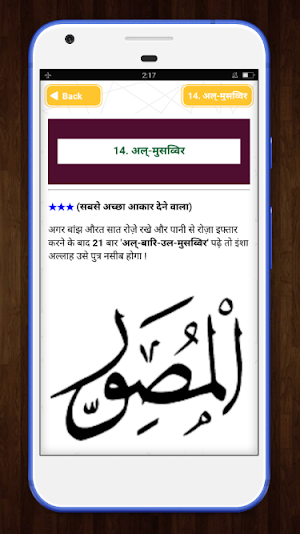 2:17
Back
14. अल्-मुसव्विर
14. अल्-मुसव्विर
★★★ (सबसे अच्छा आकार देने वाला)
अगर बांझ औरत सात रोज़े रखे और पानी से रोज़ा इफ्तार
करने के बाद 21 बार 'अल्-बारि-उल-मुसव्विर' पढ़े तो इंशा
अल्लाह उसे पुत्र नसीब होगा !
الْمُصَوِّر